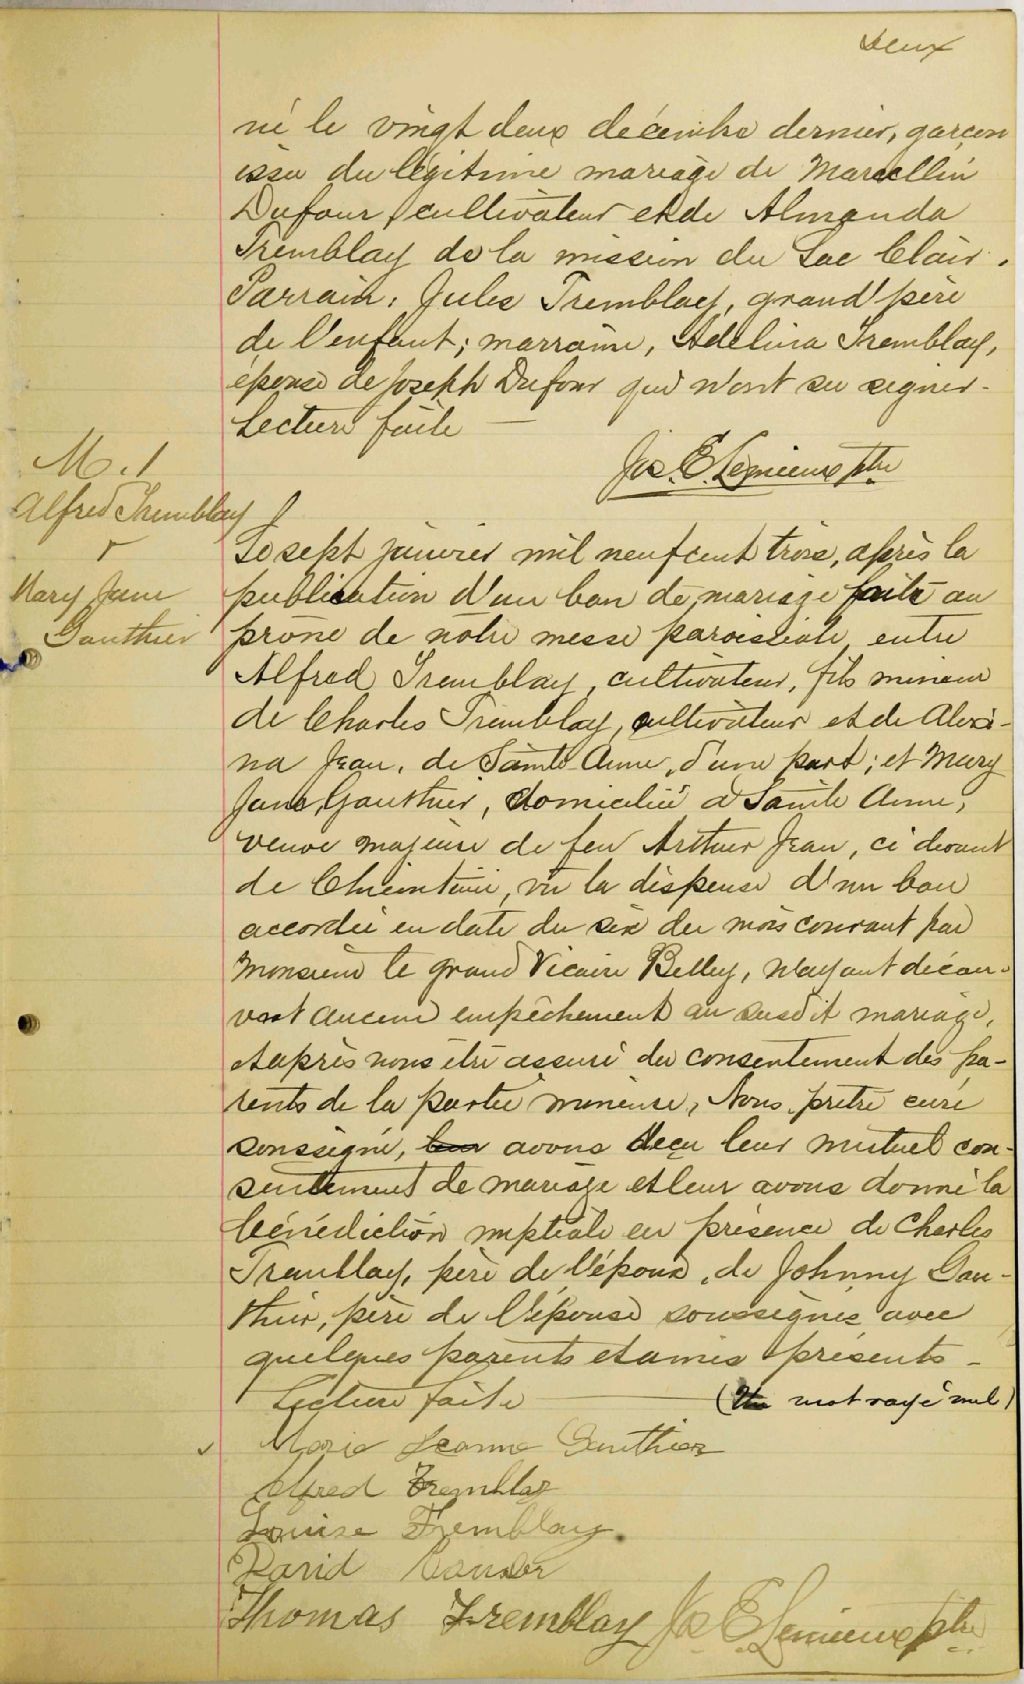 Deux
né le vingt deux décembre dernier, garçon
issu du légitime mariage de Marcellin
Dufour, cultivateur et de Almanda
Tremblay de la mission du Lac Clair.
Parrain, Jules Tremblay, grand'père
de l'enfant; marraine, Adelina Tremblay,
épouse de Joseph Dufour qui n'ont su signer.
Lecture faite —
Jos. E. Lemieux ptre
M. 1
Alfred Tremblay
&
Mary Jane
Gauthier
Le sept janvier mil neuf cent trois, après la
publication d'un ban de mariage faite au
prône de notre messe paroissiale, entre
Alfred Tremblay, cultivateur, fils mineur
de Charles Tremblay, cultivateur et de Alexi-
na Jean, de Sainte Anne, d'une part; et Mary
Jane Gauthier, domiciliée à Sainte Anne,
veuve majeure de feu Arthur Jean, ci devant
de Chicoutimi, vu la dispense d'un ban
accordée en date du six du mois courant par
Monsieur le grand Vicaire Belley, n'ayant décou-
vert aucun empêchement au susdit mariage,
et après nous être assuré du consentement des pa-
rents de la partie mineure, Nous, prêtre curé
soussigné, avons reçu leur mutuel con-
sentement de mariage et leur avons donné la
bénédiction nuptiale en présence de Charles
Tremblay, père de l'époux, de Johnny Gau-
thier, père de l'épouse soussignés avec
quelques parents et amis présents –
Lecture faite — (Un mot rayé nul)
Marie Jeanne Gauthier
Alfred Tremblay
Louise Tremblay.
David
Thomas Tremblay Jos E. Lemieux ptre